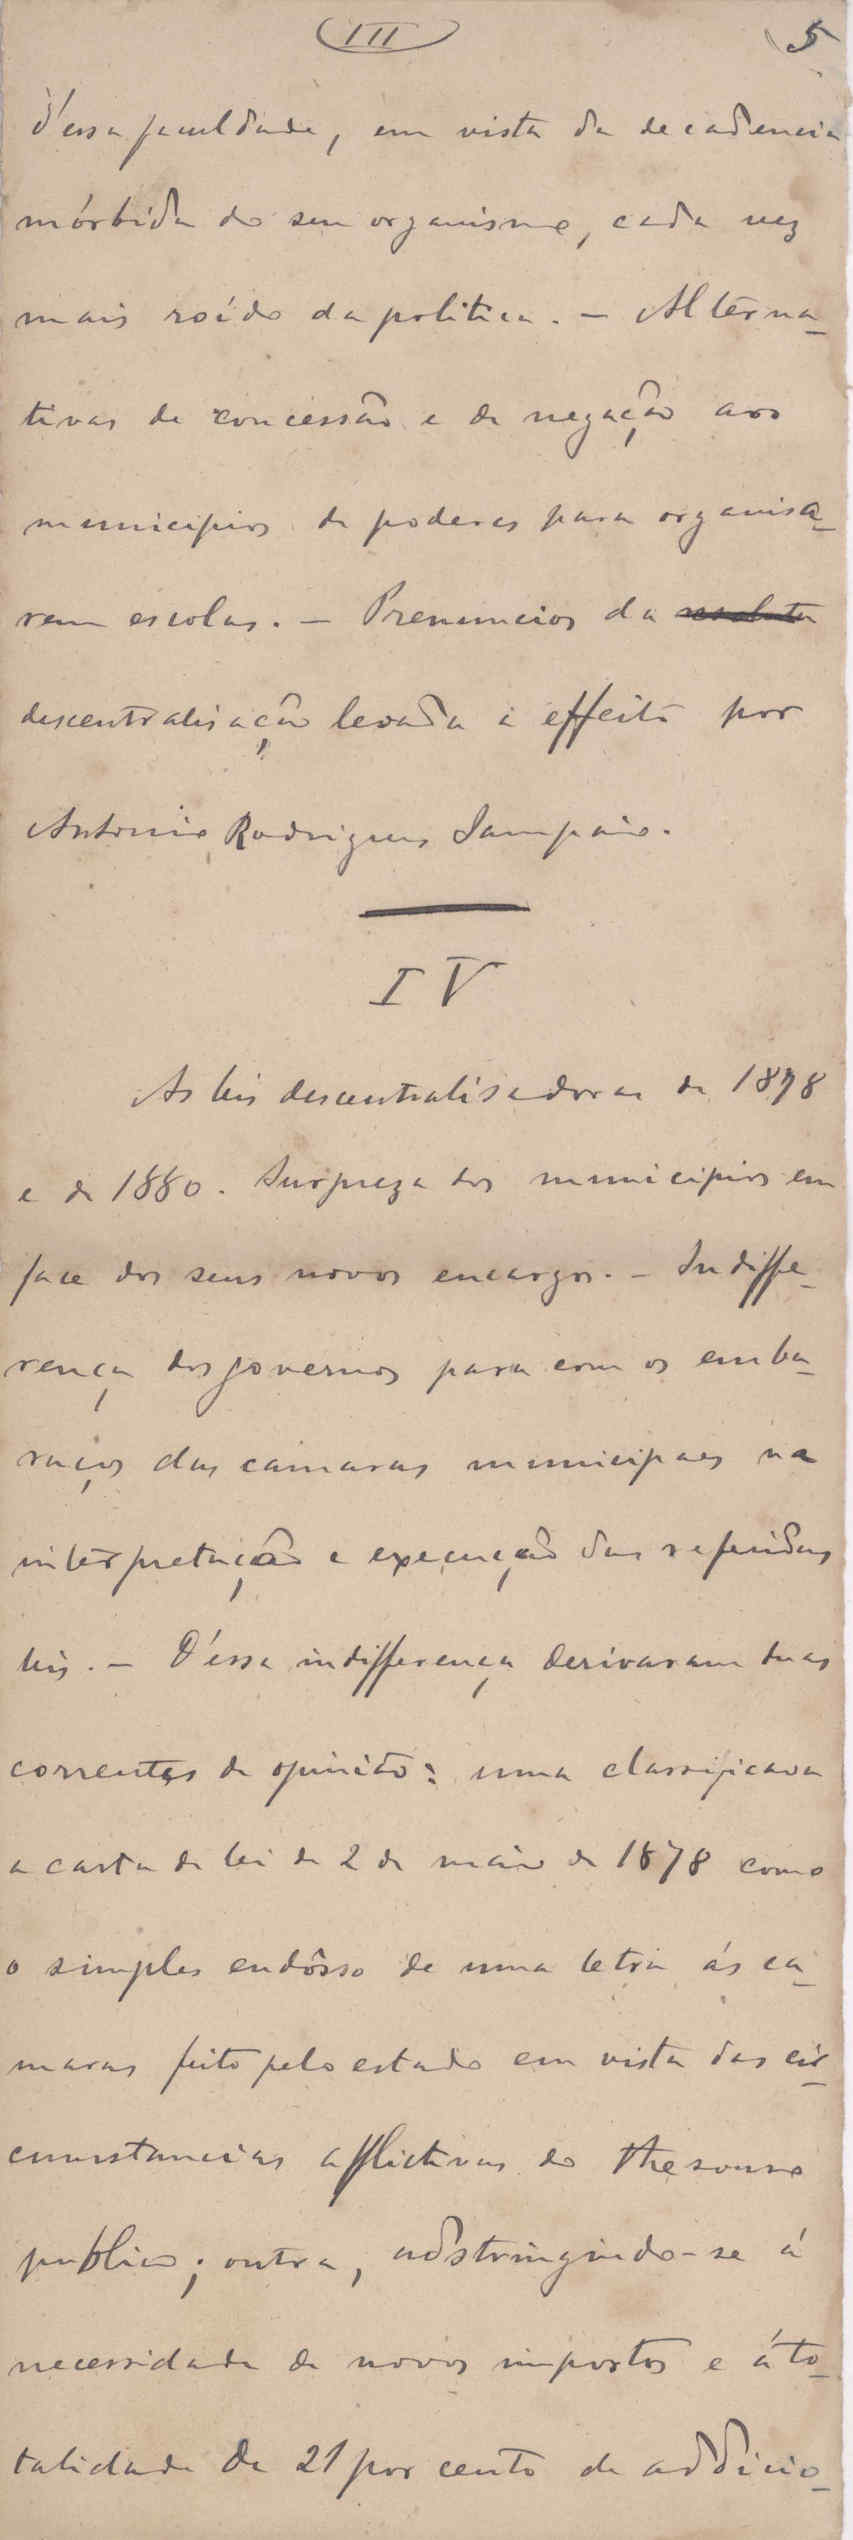 III 5
d'essa faculdade, em vista da decadencia
mórbida do seu organismo, cada vez
mais roído da politica. — Alterna-
tivas de concessão e de negação aos
municipios de poderes para organisa-
rem escolas. — Prenuncios da
descentralisação levada a effeito por
Antonio Rodrigues Sampaio.
IV
As leis descentralisadoras de 1878
e de 1880. Surpreza dos municipios em
face dos seus novos encargos. — Indiffe-
rença dos governos para com os emba-
raços das camaras municipaes na
interpretação e execução das referidas
leis. — D'essa indifferença derivaram duas
correntes de opinião: uma classificava
a carta de lei de 2 de maio de 1878 como
o simples endôsso de uma letra ás ca-
maras feito pelo estado em vista das cir-
cumstancias afflictivas do thesouro
publico; outra, adstringindo-se á
necessidade de novos impostos e á to-
talidade de 21 por cento de addicio-